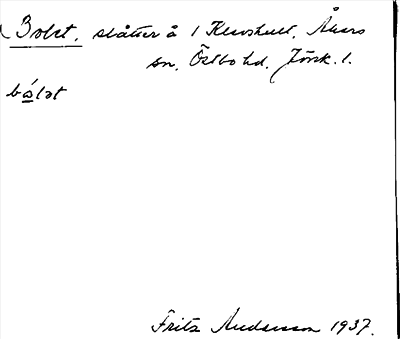 Bolet, slåtter å 1 Klevshult, Åkers
sn, Östbo hd, Jönk. l.
bålət
Fritz Andersson 1937.